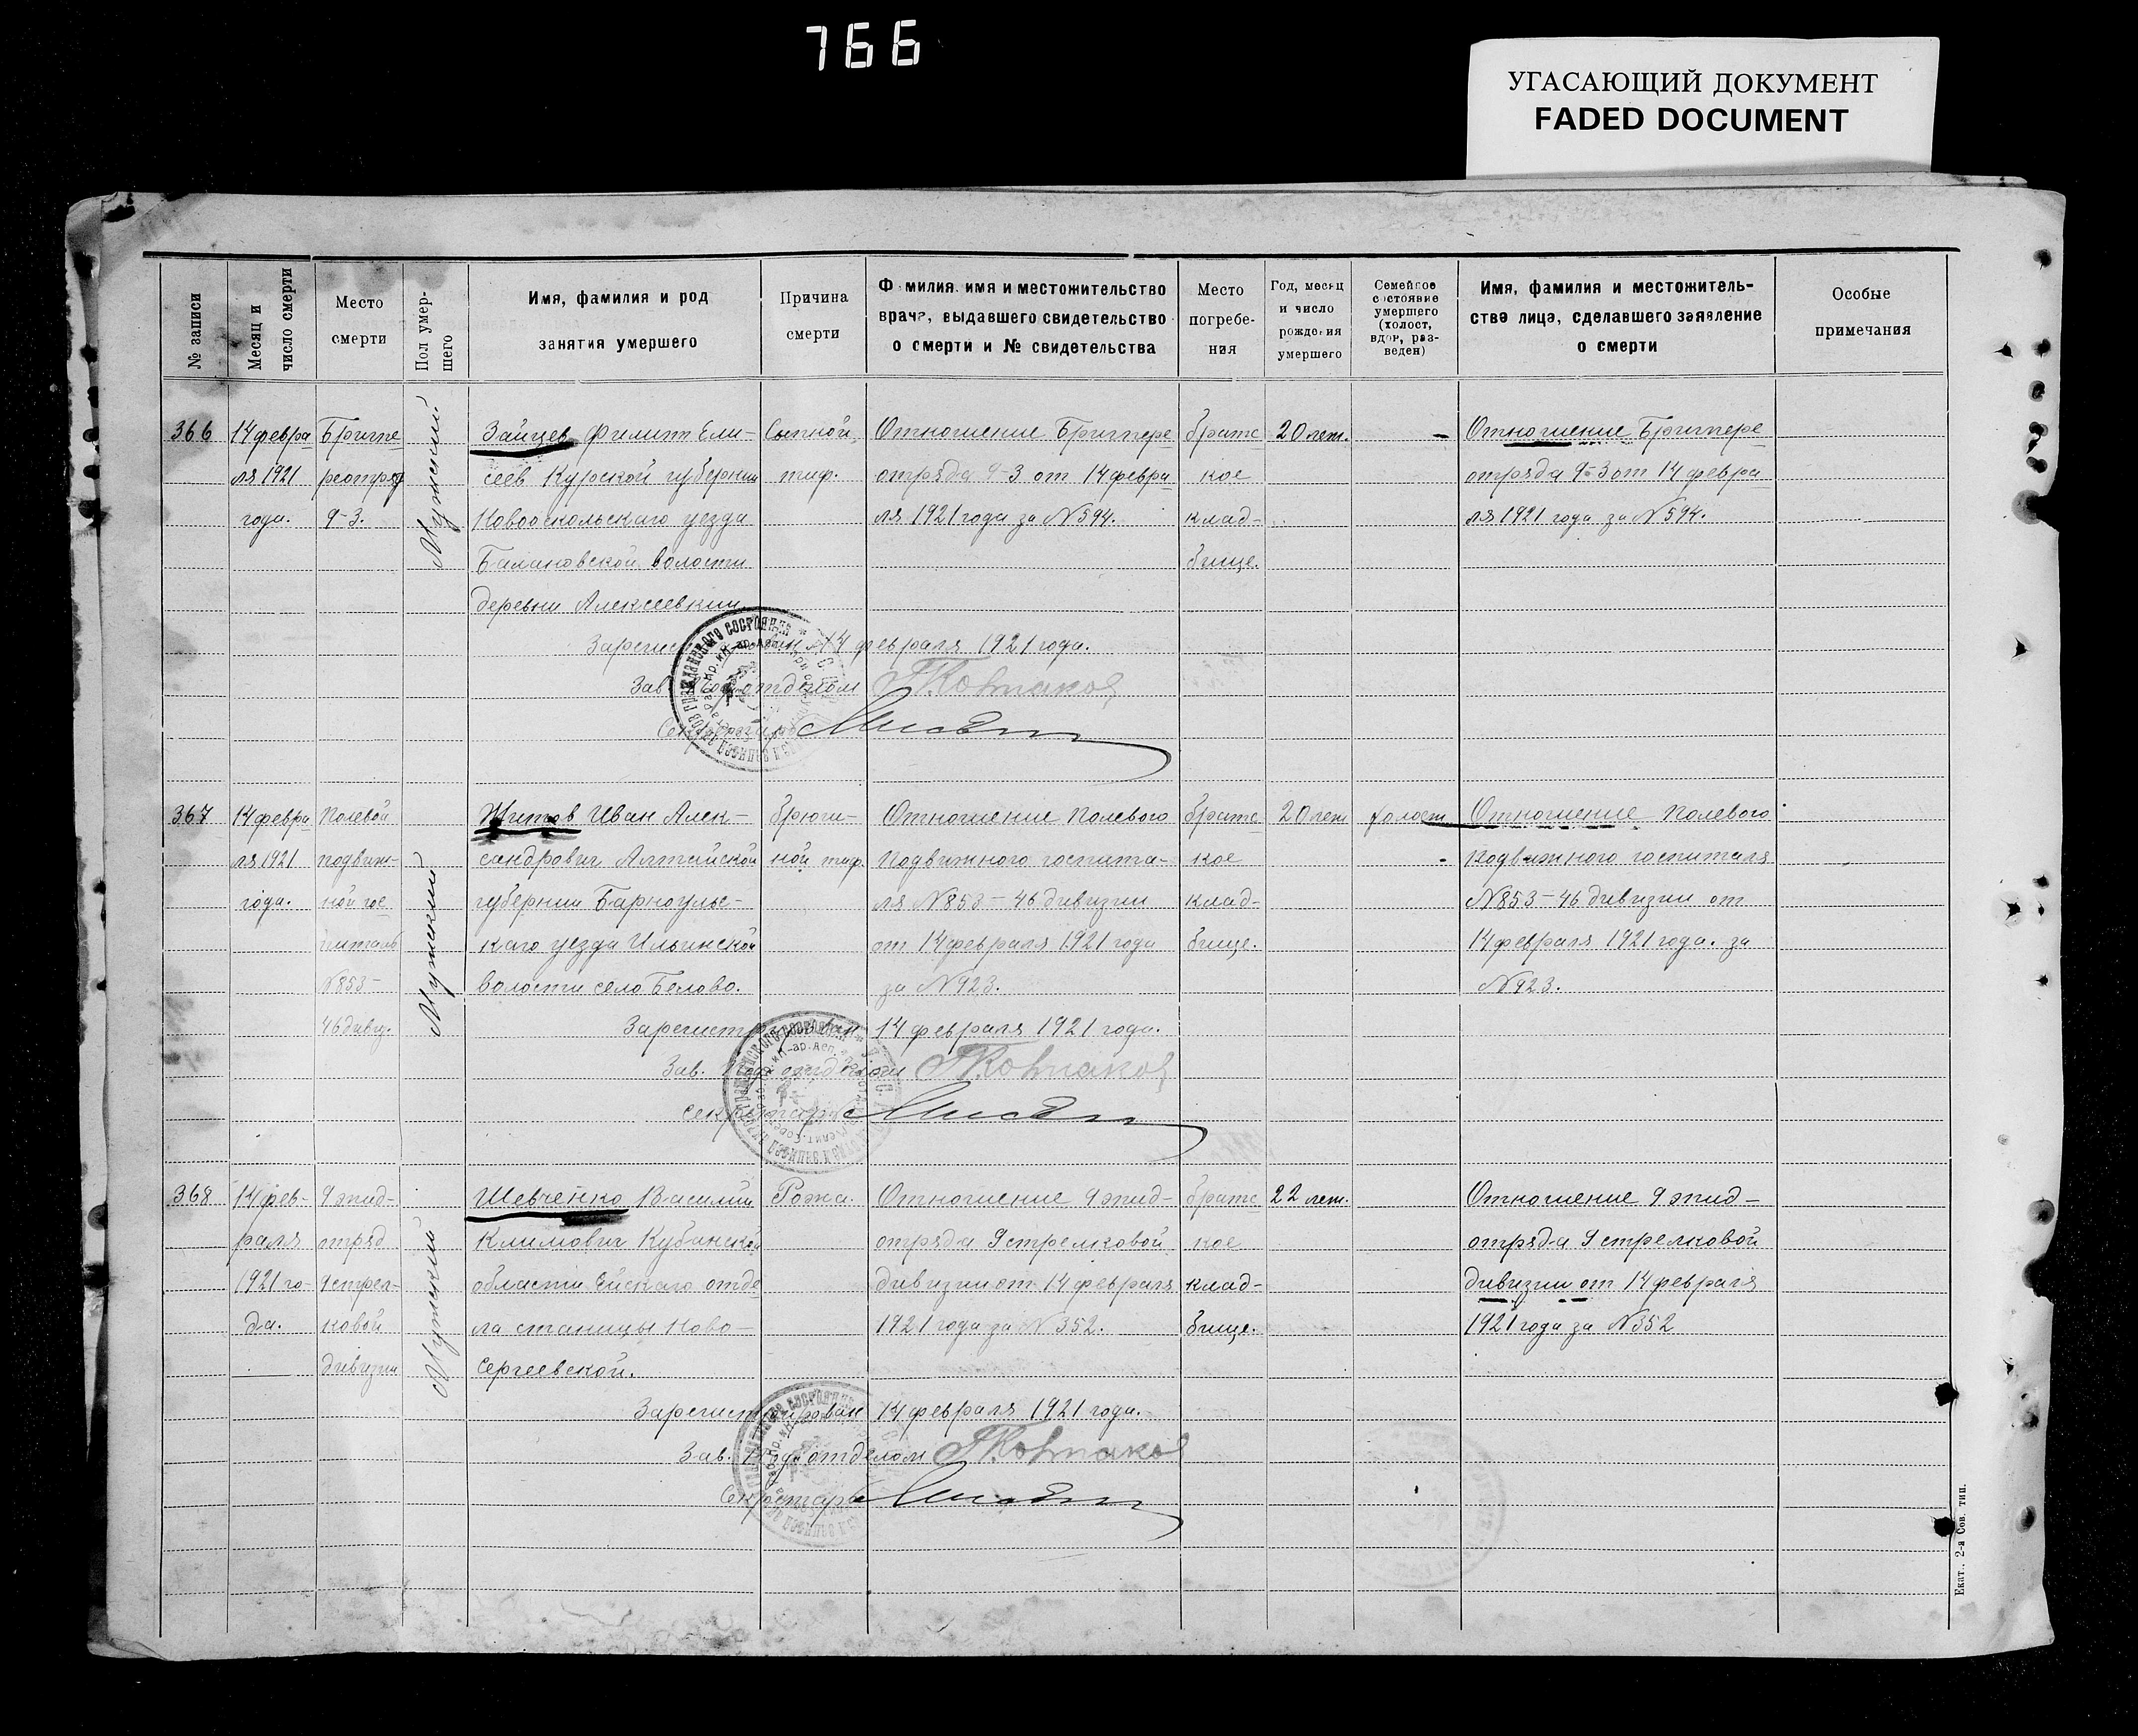 766
УГАСАЮЩИЙ ДОКУМЕНТ
FADED DOCUMENT
№ записи
Месяц и
число смерти
Место
смерти
Пол умер-
шего
Имя, фамилия и род
занятия умершего
Причина
смерти
Фамилия, имя и местожительство
врача, выдавшего свидетельство
о смерти и № свидетельства
Место
погребе-
ния
Год, месяц
и число
рождения
умершего
Семейное
состояние
умершего
(холост,
вдов, раз-
веден)
Имя, фамилия и местожитель-
ство лица, сделавшего заявление
о смерти
Особые
примечания
366
14 февра
ля 1921
года.
Бригпе
реотряд
9-3.
Мужской
Зайцев Филипп Ели-
сеев Курской губернии
Новооскольскаго уезда
Балановской волости
деревни Алексеевкии
Сыпной
тиф.
Отношение Бригпере
отряда 9-3 от 14 февра
ля 1921 года за №594.
братс
кое
клад-
бище.
20 лет.
-
Отношение Бригпере
отряда 9-3 от 14 февра
ля 1921 года за №594.
14 февраля 1921 года.
Зав. Подотделом
Секретарь
367
14 февра
ля 1921
года.
Полевой
подвиж-
ной гос
питаль
№853-
46 дивиз.
Мужской
Житов Иван Алек-
сандрович Алтайской
губернии Барноульс-
каго уезда Ильинской
волости село Белово.
брюш-
ной тиф.
Отношение Полевого
Подвижного госпита-
ля №853-46 дивизии
от 14 февраля 1921 года
за №923.
братс
кое
клад-
бище.
20 лет
холост
Отношение Полевого
Подвижного госпиталя
№853-46 дивизии от
14 февраля 1921 года. за
№923.
Зарегистрирован 14 февраля 1921 года.
Зав. Подотделом
Секретарь
368
14 фев-
раля
1921 го-
да.
9 эпид-
отряд
9 стрел-
ковой
дивизии
Мужской
Шевченко Василий
Климович Кубанской
области Ейскаго отде
ла станицы Ново-
Сергеевской.
Рожа.
Отношение 9 эпид-
отряда 9 стрелковой
дивизии от 14 февраля
1921 года за №352.
братс
кое
клад-
бище.
22 лет.
Отношение 9 эпид-
отряда 9 стрелковой
дивизии от 14 февраля
1921 года за №352
Зарегистрирован 14 февраля 1921 года.
Зав. Подотделом
Секретарь
Екат. 2-я Сов. тип.